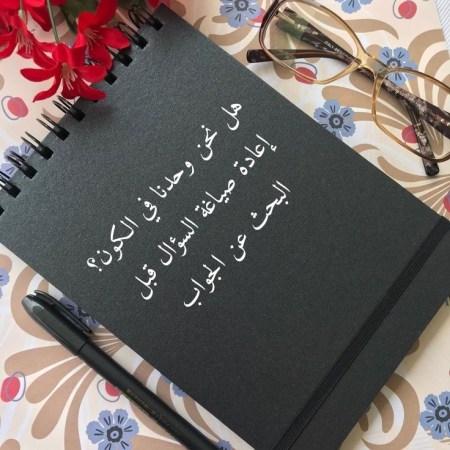 هل نحن وحدنا في الكون؟
إعادة صياغة السؤال قبل
البحث عن الجواب